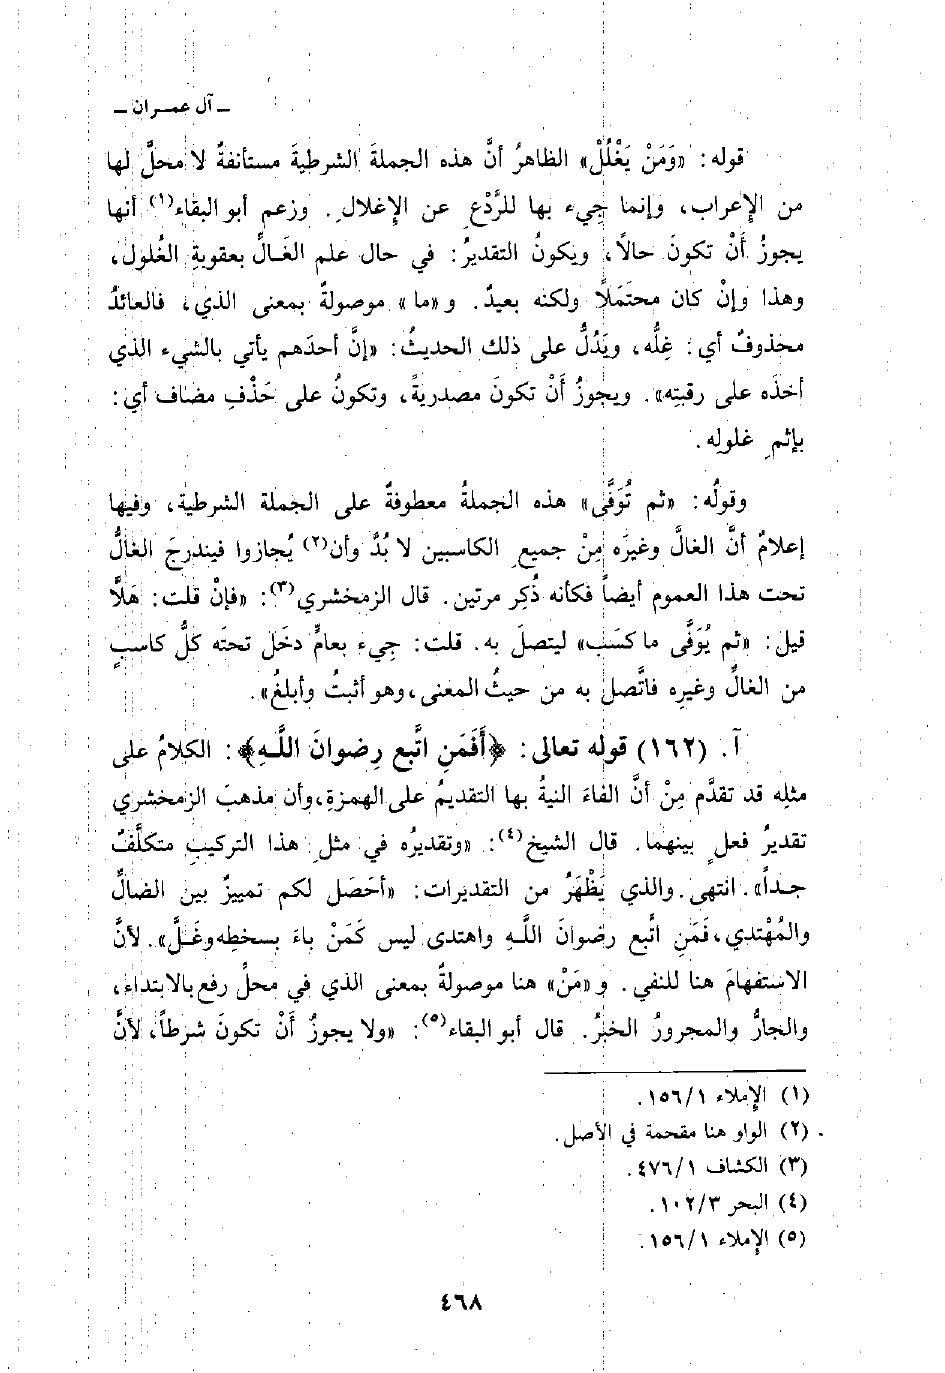 ـ آل عمـران ـ
قوله: «وَمَنْ يَغْلُلْ» الظاهرُ أنَّ هذه الجملةَ الشرطيةَ مستأنفةٌ لا محلَّ لها
من الإِعراب، وإنما جِيء بها للرَّدْعِ عن الإِغلالِ. وزعم أبو البقاء(١) أنها
يجوزُ أَنْ تكونَ حالاً، ويكونُ التقديرُ: في حال علم الغَـالِّ بعقوبةِ الغُلول،
وهذا وإنْ كان محتمَلاً ولكنه بعيدٌ. و«ما» موصولةٌ بمعنى الذي، فالعائدُ
محذوفٌ أي: غلَّه، ويَدُلُّ على ذلك الحديثُ: «إنَّ أحدَهم يأتي بالشيء الذي
أخذَه على رقبتِه». ويجوزُ أَنْ تكونَ مصدريةً، وتكونُ على حَذْفِ مضاف أي:
بإثمِ غلولِه.
وقولُه: «ثم تُوَفَّى» هذه الجملةُ معطوفةٌ على الجملة الشرطية، وفيها
إعلامٌ أنَّ الغالَّ وغيرَه مِنْ جميعِ الكاسبين لا بُدَّ وأن(٢) يُجازوا فيندرجَ الغالُّ
تحت هذا العمومِ أيضاً فكأنه ذُكِر مرتين. قال الزمخشري(٣): «فإنْ قلت: هَلاَّ
قيل: «ثم يُوَفَّى ما كسَب» ليتصلَ به. قلت: جِيء بعامٍّ دخَل تحتَه كلُّ كاسبٍ
من الغالِّ وغيرِه فاتَّصل به من حيثُ المعنى، وهو أثبتُ وأبلغُ».
آ. (١٦٢) قوله تعالى: ﴿أَفَمَنِ اتَّبع رِضوانَ اللَّهِ﴾: الكلامُ على
مثلِه قد تقدَّم مِنْ أنَّ الفاءَ النيةُ بها التقديمُ على الهمزةِ، وأن مذهبَ الزمخشري
تقديرُ فعلٍ بينهما. قال الشيخ(٤): «وتقديرُه في مثلِ هذا التركيبِ متكلَّفٌ
جـداً». انتهى. والذي يَظْهَرُ من التقديرات: «أحَصَل لكم تمييزٌ بين الضالِّ
والمُهْتدي، فَمَنِ اتَّبع رضوانَ اللَّهِ واهتدى ليس كَمَنْ باءَ بسخطِه وغَـلَّ». لأنَّ
الاستفهامَ هنا للنفي. و«مَنْ» هنا موصولةٌ بمعنى الذي في محلِّ رفعٍ بالابتداء،
والجارُّ والمجرورُ الخبرُ. قال أبو البقاء(٥): «ولا يجوزُ أَنْ تكونَ شرطاً، لأنَّ
(١) الإِملاء ١٥٦/١.
(٢) الواو هنا مقحمة في الأصل.
(٣) الكشاف ٤٧٦/١.
(٤) البحر ١٠٢/٣.
(٥) الإِملاء ١٥٦/١.
٤٦٨